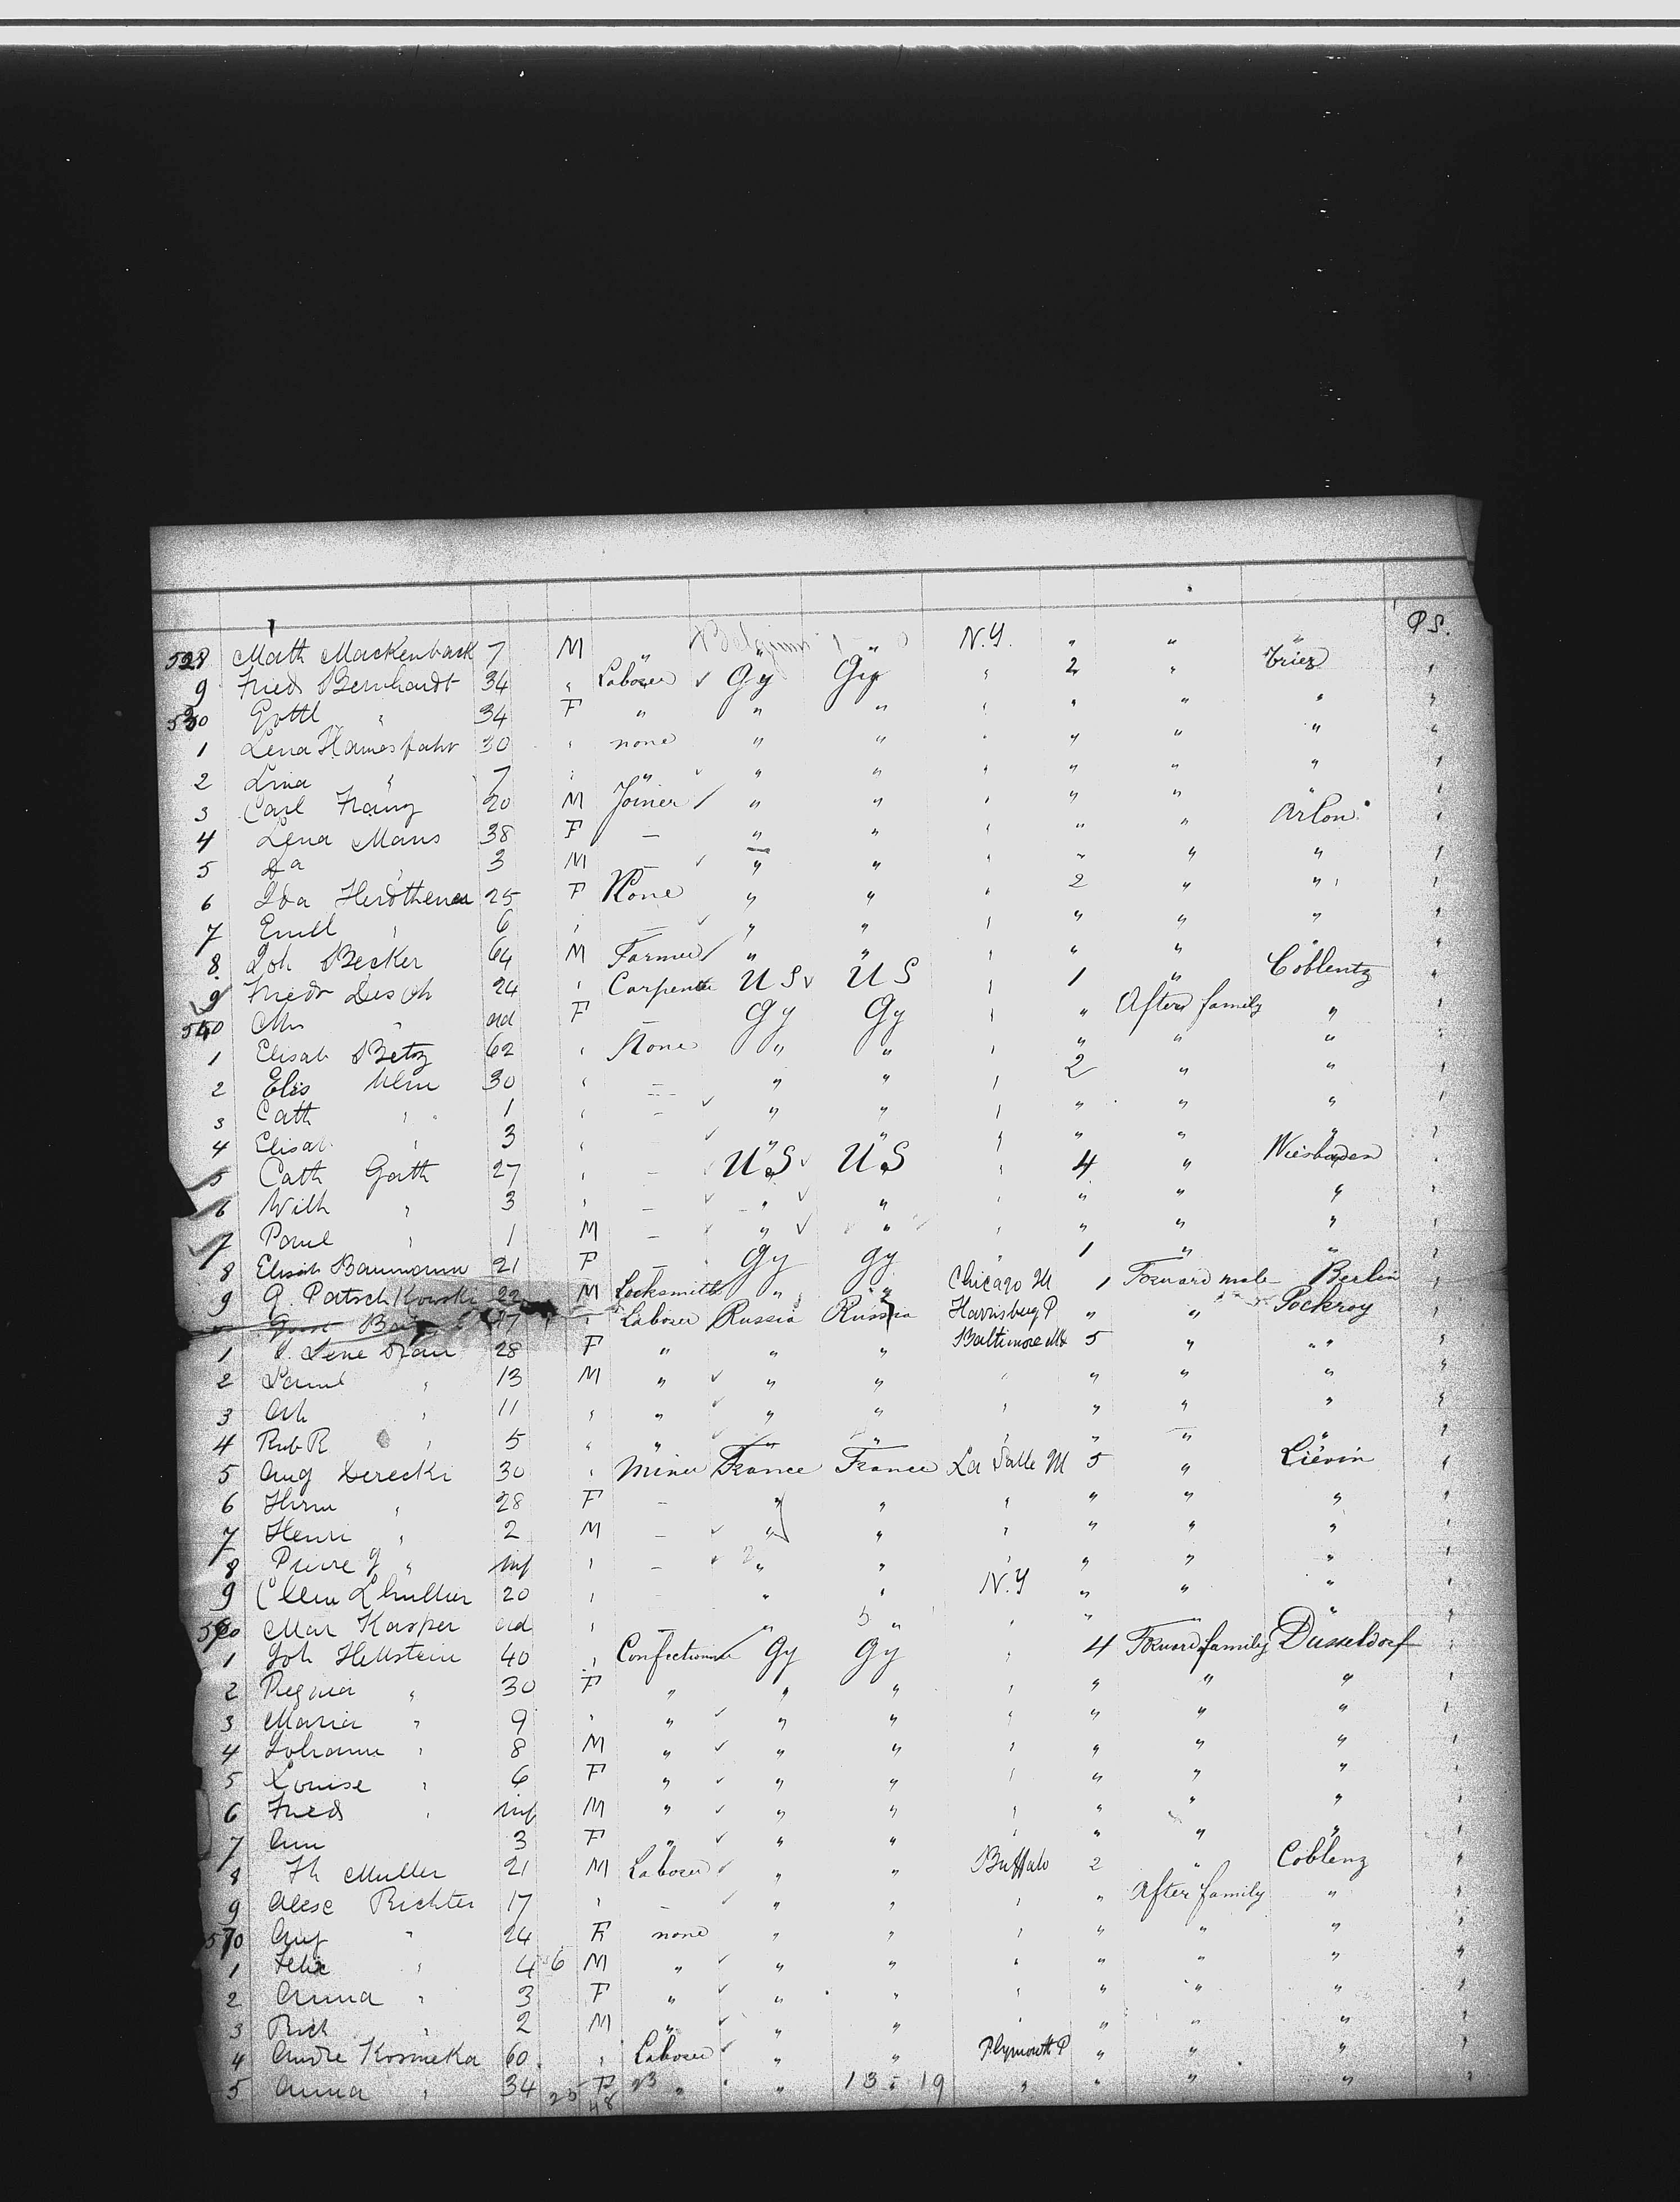 P S.
528 Math Mackenback 7 M " " " N.Y. " " "
9 Fried Bernhardt 34 " Laborer ✓ Gy Gy " 2 " Trier "
530 Gottl " 34 F " " " " " " " "
1 Lena Hamesfahr 30 " none " " " " " " "
2 Lina " 7 " " ✓ " " " " " " "
3 Carl Franz 20 M Joiner ✓ " " " " " " "
4 Lena Maus 38 F — " " " " " Arlon "
5 Da 3 M — ✓ " " " " " " "
6 Ida 25 F None " " " 2 " " "
7 Emil " 6 " — ✓ " " " " " " "
8 Joh Becker 64 M Farmer ✓ " " " " " " "
9 Friedr Desch 24 " Carpenter U S ✓ U S " 1 " Coblentz "
540 Mrs " ad F — Gy Gy " " After family " "
1 Elisab Betz 62 " None " " " " " " "
2 Elis Ulm 30 " — " " " 2 " " "
3 Cath " 1 " — ✓ " " " " " " "
4 Elisab " 3 " ✓ " " " " " " "
5 Cath Gath 27 " — U S ✓ U S " 4 " Wiesbaden "
6 Wilh " 3 " — ✓ " ✓ " " " " " "
7 Paul " 1 M — " ✓ " " " " " "
8 Elisab Baumann 21 F — Gy Gy " 1 " " "
9 G Patschkowski 22 M Locksmith " " Chicago Ill 1 Forward male Berlin "
17 " Laborer Russia Russia Harrisburg P " " Pockroy
1 28 F " " " Baltimore Md 5 " " "
2 Saml " 13 M " ✓ " " " " " " "
3 Ah " 11 " " ✓ " " " " " " "
4 Rub R " 5 " " ✓ " " " " " " "
5 Aug Derecki 30 " Miner France France La Salle Ill 5 " Liévin "
6 Herm " 28 F — " " " " " " "
7 Henri " 2 M — ✓ " " " " " " "
8 Pierre J " inf " — ✓ " " " " " " "
9 Clem Lhullier 20 " — " " N.Y " " " "
560 Mar Kasper ad " — " 5 " " " — " "
1 Joh Hellstein 40 " Confectioner Gy Gy " 4 Forward family Dusseldorf "
2 Regina " 30 F " " " " " " " "
3 Maria " 9 " " ✓ " " " " " " "
4 Johann " 8 M " ✓ " " " " " " "
5 Louise " 6 F " ✓ " " " " " " "
6 Fried " inf M " ✓ " " " " " " "
7 Ann 3 F " ✓ " " " " " " "
8 Fh Muller 21 M Laborer ✓ " " Buffalo 2 " Coblenz "
9 Richter 17 " — ✓ " " " " After family " "
570 Aug " 24 F none " " " " " " "
1 Felix " 4 6 M " ✓ " " " " " " "
2 Anna " 3 F " ✓ " " " " " " "
3 Rich " 2 M " ✓ " " " " " " "
4 Andre Kosmeka 60 " Laborer ✓ " " Plymouth P " " " "
5 Anna " 34 F 23 " " " 13 19 " " " " "
25 48